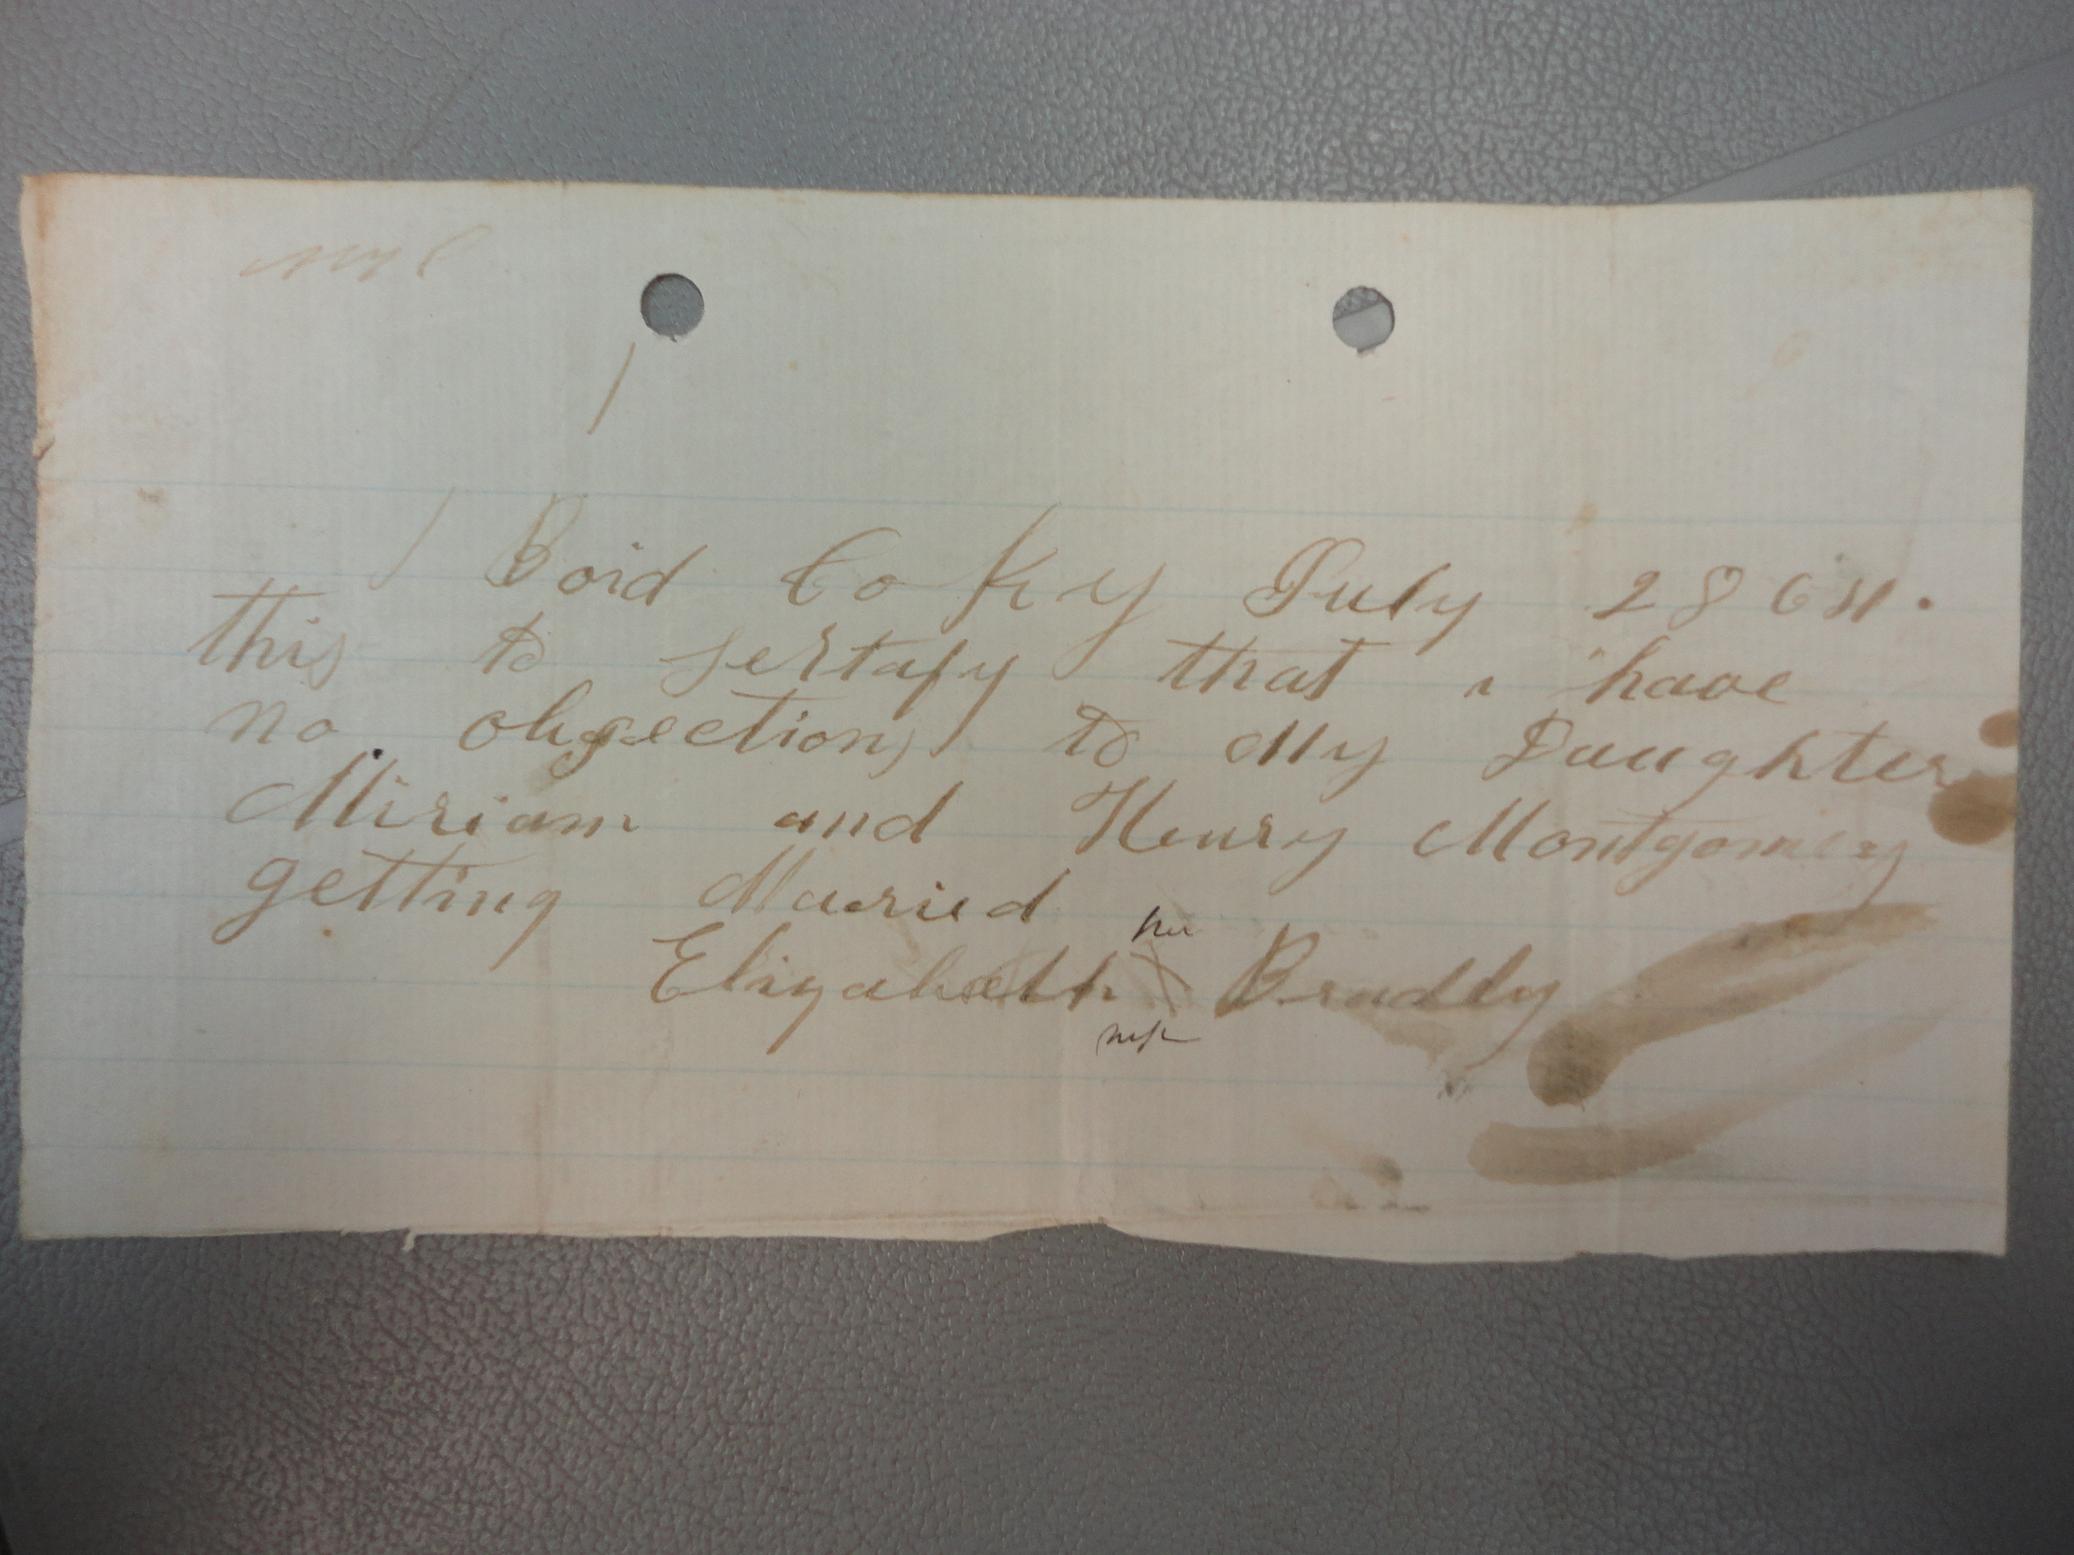 Boid Co Ky July 28 64.
this to sertafy that i have
no obgections to My Daughter
Miriam and Henry Montgomery
getting Maried
her
Elizabeth X Braddy